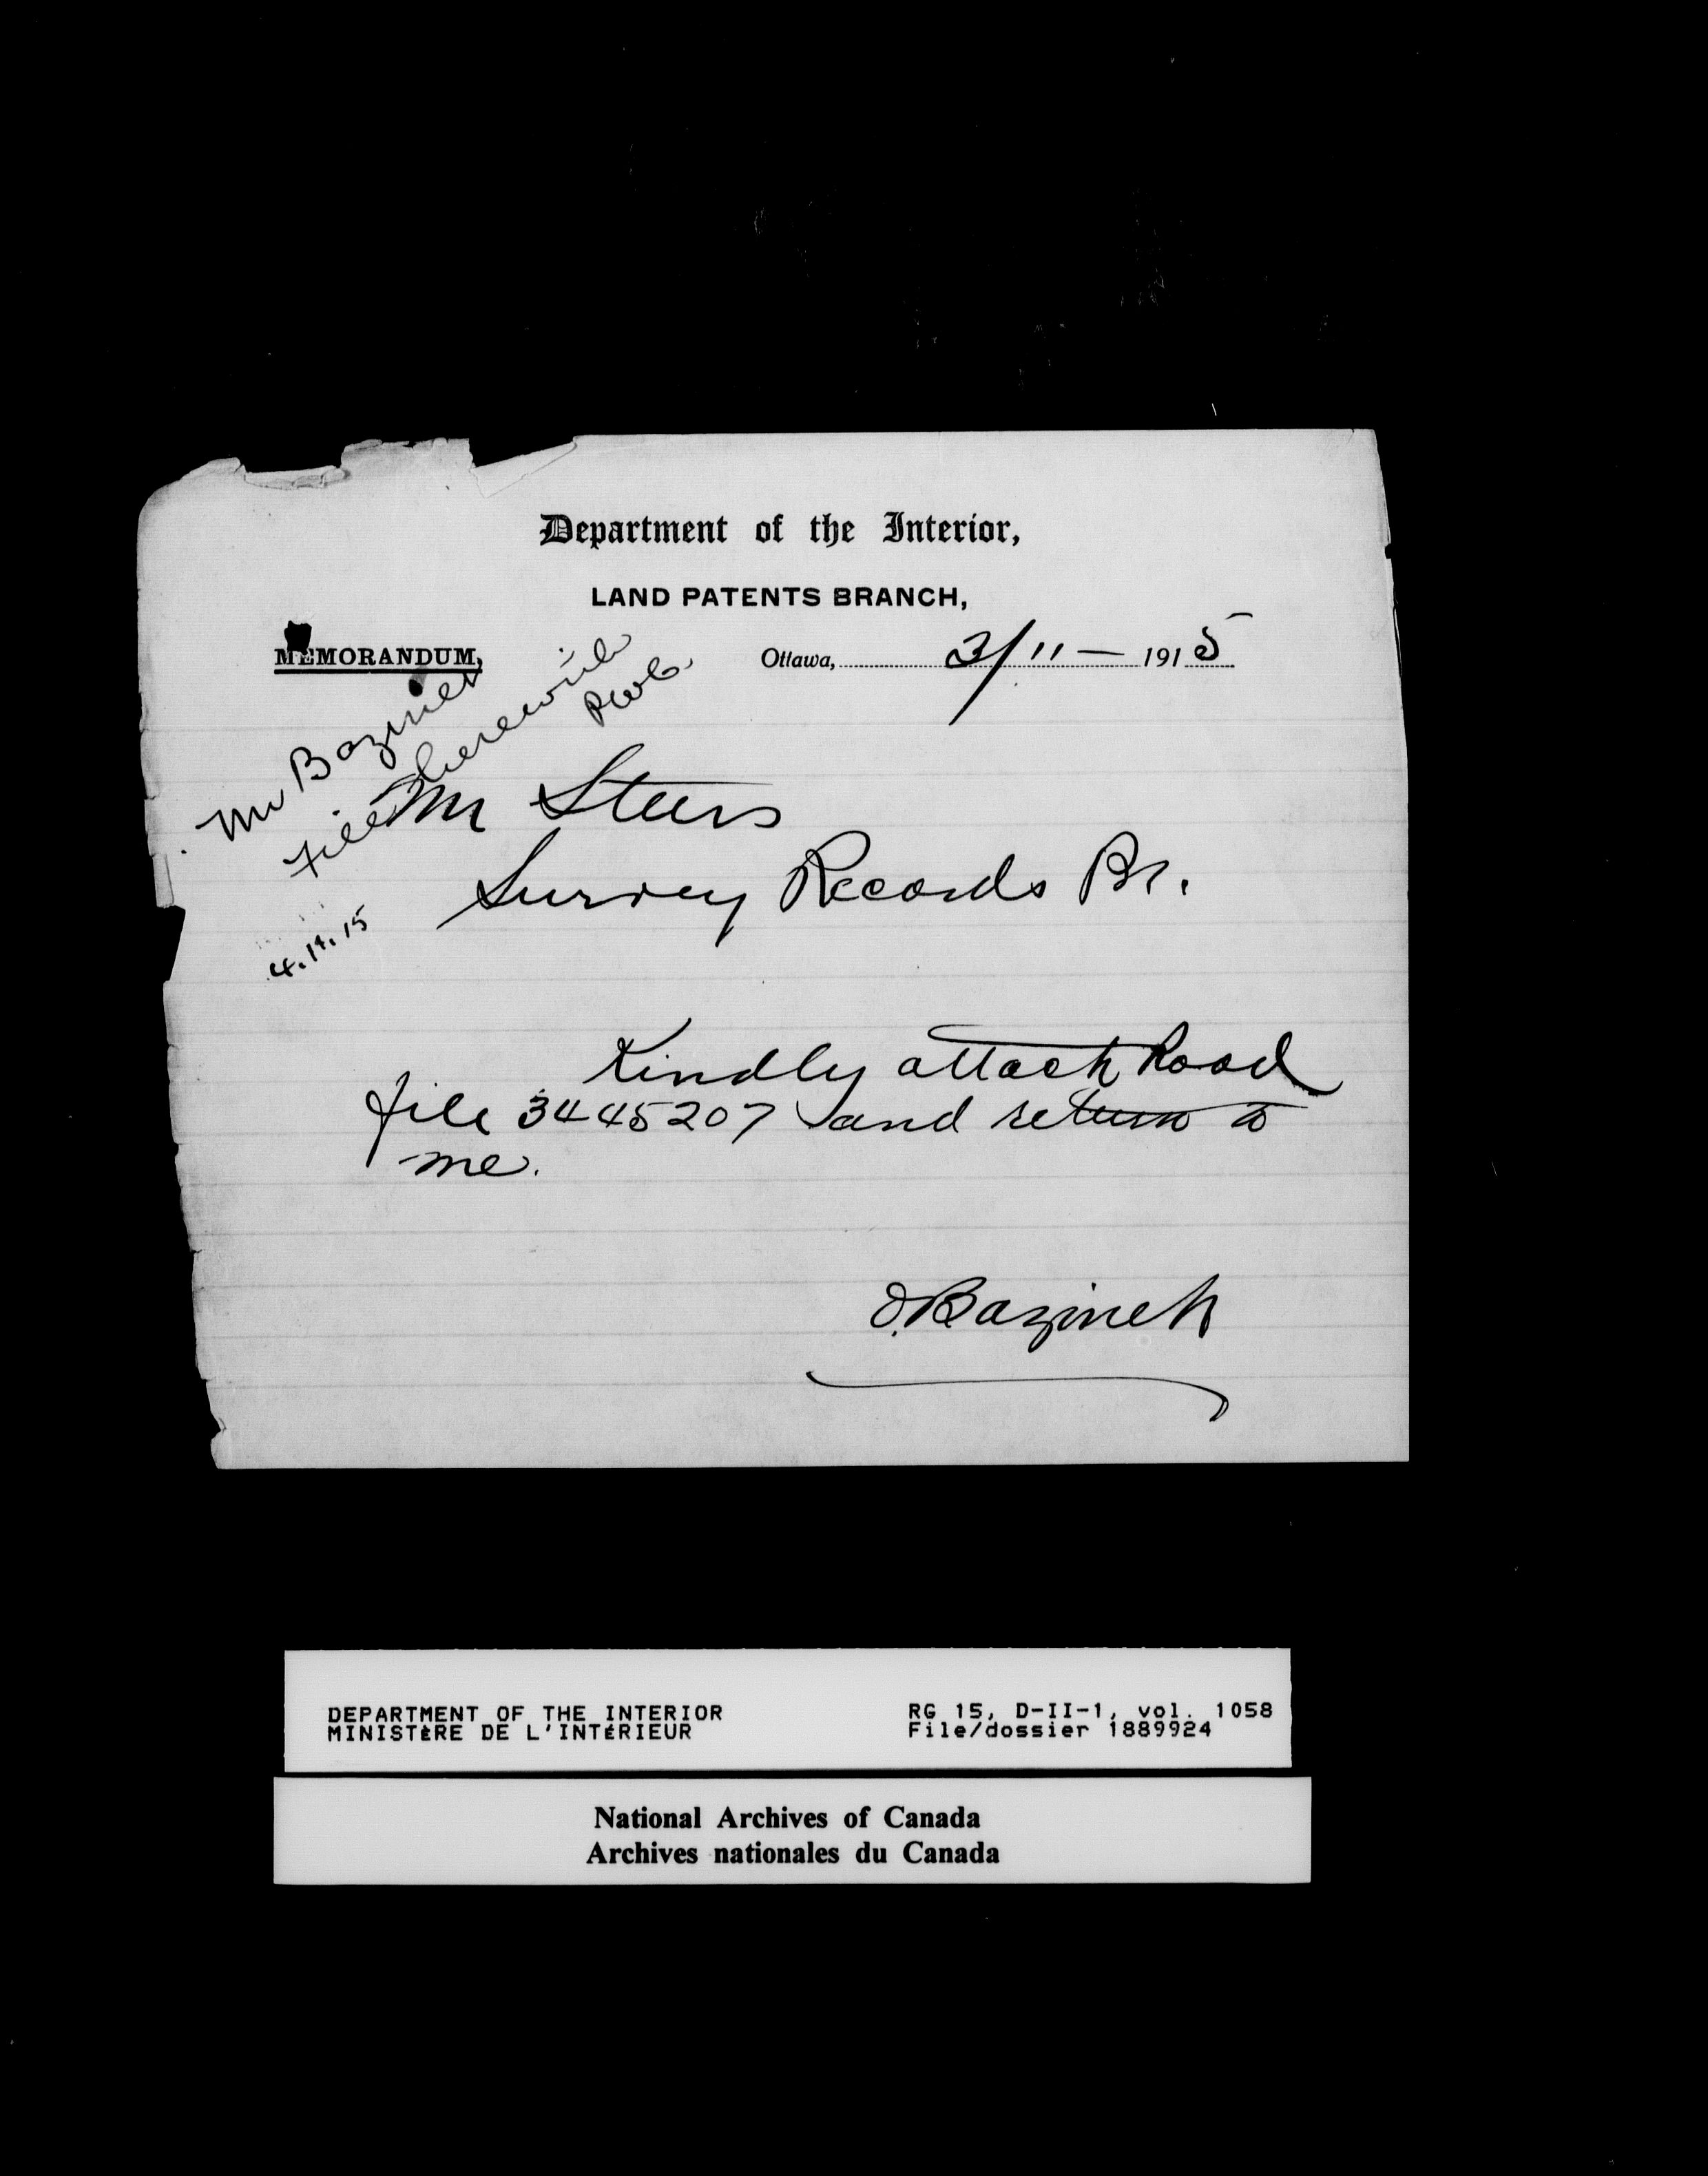 Department of the Interior,
LAND PATENTS BRANCH,
MEMORANDUM,
Ottawa, 3/11 — 1915
Mr Bazinet
File herewith
4.11.15
Mr Steers
Survey Records Br.
Kindly attach Road
file 3445207 and return to
me.
O. Bazinet
DEPARTMENT OF THE INTERIOR
MINISTÈRE DE L'INTÉRIEUR
RG 15, D-II-1, vol. 1058
File/dossier 1889924
National Archives of Canada
Archives nationales du Canada